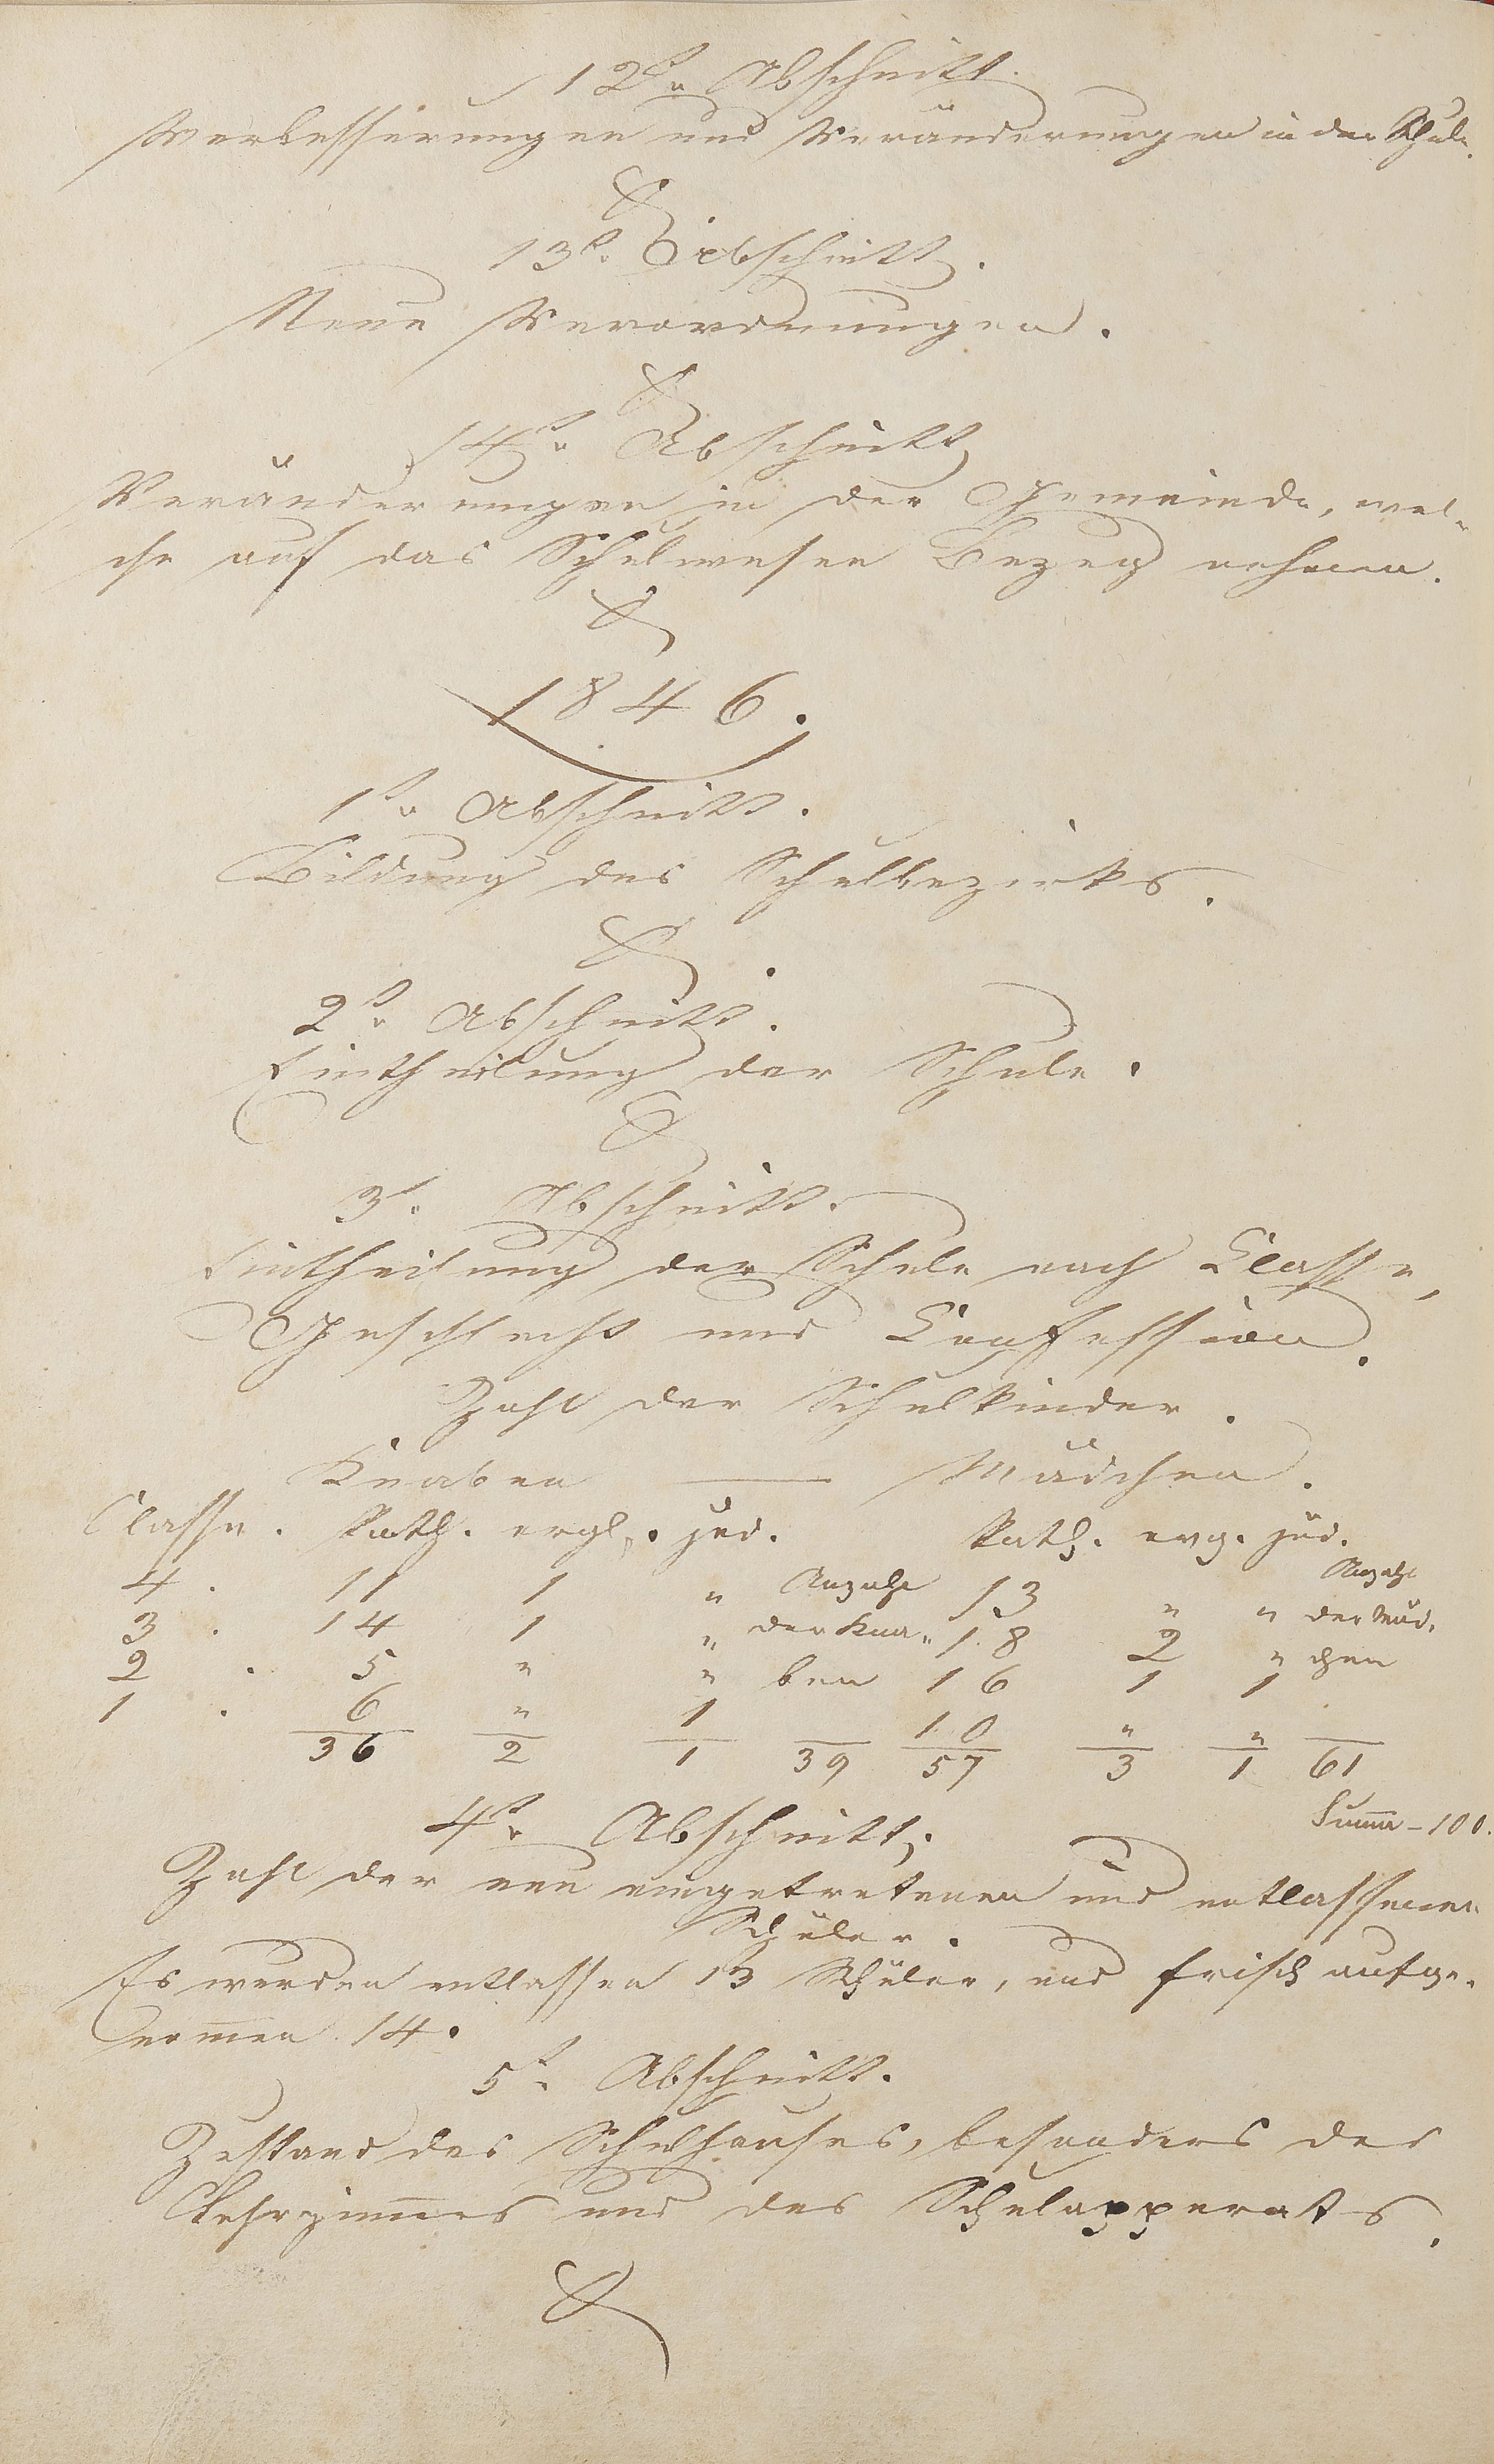 12r. Abschnitt.
Verbesserungen und Veränderungen in der Schule.
13r. Abschnitt.
Neue Verordnungen.
14r. Abschnitt
Veränderungen in der Gemeinde, wel-
che auf das Schulwesen Bezug nehmen.
1846.
1r. Abschnitt.
Bildung des Schulbezirks.
2r. Abschnitt.
Eintheilung der Schule.
3r. Abschnitt.
Eintheilung der Schule nach Classe,
Geschlecht und Confession.
Zahl der Schulkinder.
Knaben — Mädchen.
Classe. kath. ergl. jud. kath. evg. jüd.
4. 11 1 " Anzahl 13 " " Anzahl
3. 14 1 " der Kna- 18 2 " der Mäd-
2. 5 " " ben 16 1 1 chen
1. 6 " 1 10 " "
36 2 1 39 57 3 1 61
Summa - 100.
4r. Abschnitt.
Zahl der neu eingetretenen und entlassenen
Schüler.
Es wurden entlassen 13 Schüler, und frisch aufge-
nommen 14.
5r. Abschnitt.
Zustand des Schulhauses, besonders des
Lehrzimmers und des Schulapperats.